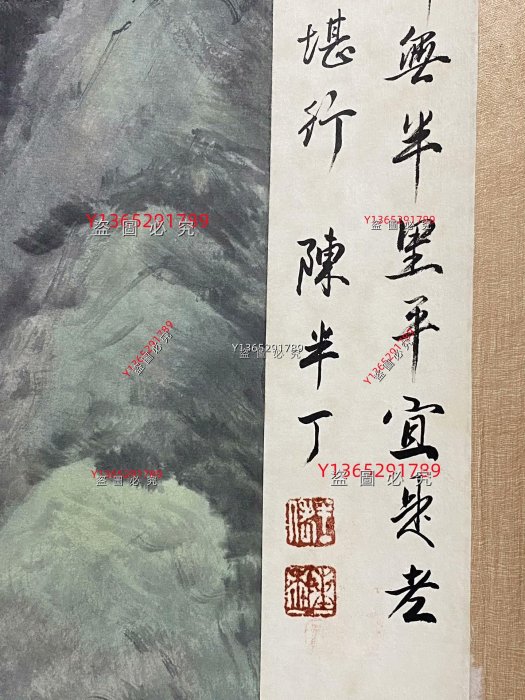 無半里平宜是老
堪行 陳半丁
Y1365291789
盜圖必究
Y1365291789
盜圖必究
Y1365291789
盜圖必究
Y1365291789
盜圖必究
Y1365291789
盜圖必究
Y1365291789
盜圖必究
Y1365291789
盜圖必究